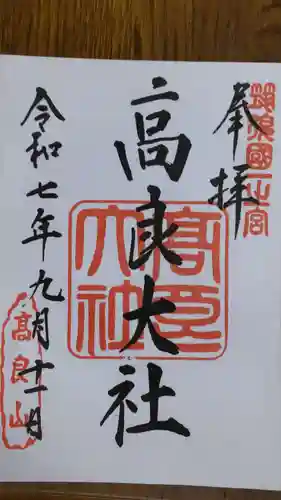 奉拝
筑後國一之宮
高良大社
高良大社
令和七年九月十一日
高良山